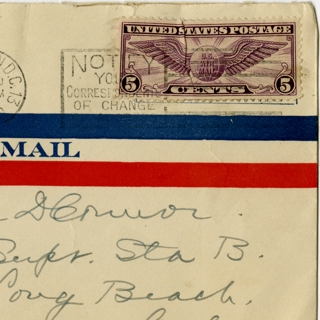 UNITED STATES POSTAGE
5 CENTS 5
N.D.C. 13
NOTIFY
YOUR
CORRESPONDENTS
OF CHANGE
MAIL
Supt. Sta B.
Long Beach.